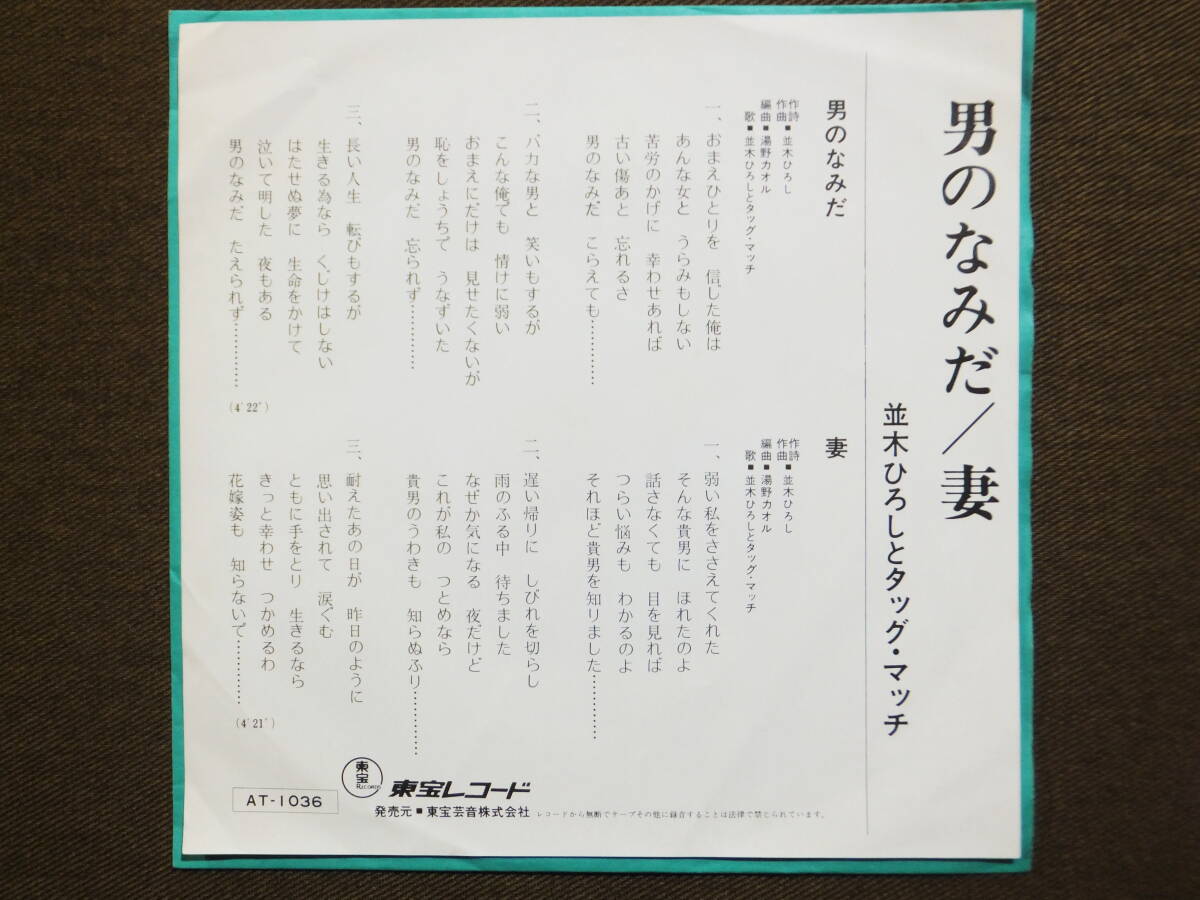 男のなみだ／妻
並木ひろしとタッグ・マッチ
男のなみだ
作詩
作曲■並木ひろし
編曲■湯野カオル
歌■並木ひろしとタッグ・マッチ
一、おまえひとりを　信じた俺は
あんな女と　うらみもしない
苦労のかげに　幸わせあれば
古い傷あと　忘れるさ
男のなみだ　こらえても…………
二、バカな男と　笑いもするが
こんな俺でも　情けに弱い
おまえにだけは　見せたくないが
恥をしょうちで　うなずいた
男のなみだ　忘られず…………
三、長い人生　転びもするが
生きる為なら　くじけはしない
はたせぬ夢に　生命をかけて
泣いて明した　夜もある
男のなみだ　たえられず…………
(4'22")
妻
作詩
作曲■並木ひろし
編曲■湯野カオル
歌■並木ひろしとタッグ・マッチ
一、弱い私をささえてくれた
そんな貴男に　ほれたのよ
話さなくても　目を見れば
つらい悩みも　わかるのよ
それほど貴男を知りました…………
二、遅い帰りに　しびれを切らし
雨のふる中　待ちました
なぜか気になる　夜だけど
これが私の　つとめなら
貴男のうわきも　知らぬふり…………
三、耐えたあの日が　昨日のように
思い出されて　涙ぐむ
ともに手をとり　生きるなら
きっと幸わせ　つかめるわ
花嫁姿も　知らないで…………
(4'21")
東宝
RECORDS
東宝レコード
AT-1036
発売元■東宝芸音株式会社
レコードから無断でテープその他に録音することは法律で禁じられています。